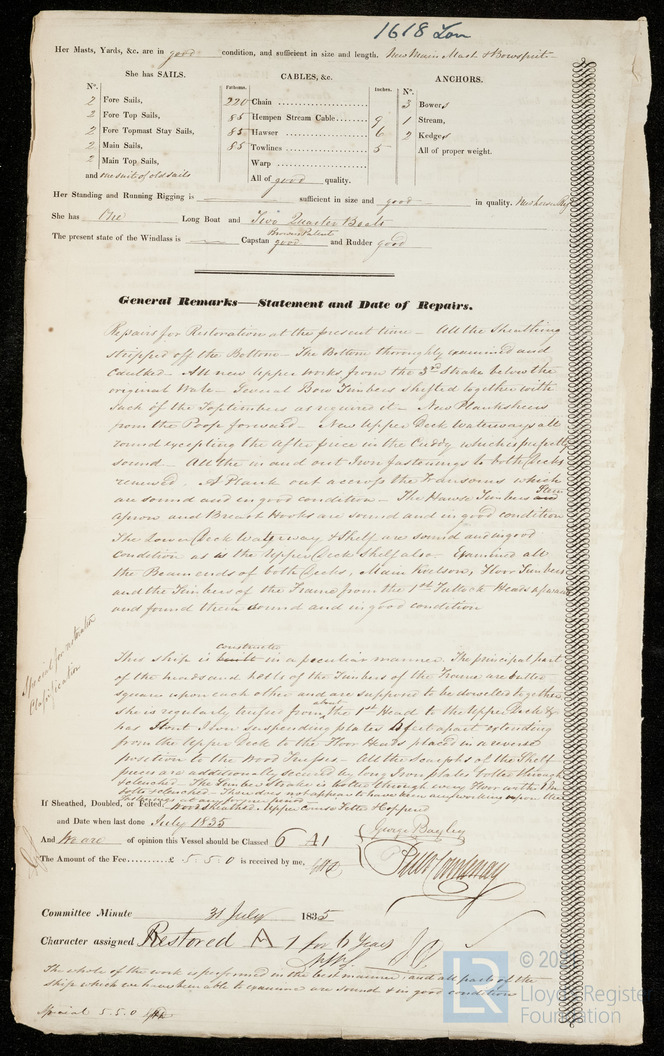 1618 Lon
Her Masts, Yards, &c. are in good condition, and sufficient in size and length. New Main Mast & Bowsprit
She has SAILS.
CABLES, &c.
ANCHORS.
Nº. Fathoms. Inches. Nº.
2 Fore Sails, 220 Chain 3 Bowers
2 Fore Top Sails, 85 Hempen Stream Cable 9 1 Stream,
2 Fore Topmast Stay Sails, 85 Hawser 6 2 Kedges
2 Main Sails, 85 Towlines 5 All of proper weight.
2 Main Top Sails, Warp
and one suit of old sails All of good quality.
Her Standing and Running Rigging is sufficient in size and good in quality.
She has One Long Boat and Two Quarter Boats
Brown Patent
The present state of the Windlass is Capstan good and Rudder good
General Remarks—Statement and Date of Repairs.
Repairs for Restoration at the present time – All the Sheathing
stripped off the Bottom – The Bottom thoroughly examined and
Caulked – All new Upper Works from the 3rd Strake below the
original Wale – Several Bow Timbers shifted together with
such of the Toptimbers as required it – New Planksheers
from the Poop forward – New Upper Deck Waterways all
round excepting the After piece in the Cuddy which is perfectly
sound – All the in and out Iron fastenings to both Decks
renewed. A Plank out across the Transoms which
are sound and in good condition – The Hawse Timbers Stem
Apron and Breast Hooks are sound and in good condition
The Lower Deck Waterway & Shelf are sound and in good
condition as is the Upper Deck Shelf also. Examined all
the Beam ends of both Decks, Main Keelson, Floor Timbers
and the Timbers of the Frame from the 1st Futtock Heads upwards
and found them sound and in good condition
Special for restoration
Classification
constructed
This ship is built in a peculiar manner. The principal part
of the heads and heels of the Timbers of the Frame are butted
square upon each other and are supposed to be dowelled together
about
she is regularly trussed from the 1st Head to the Upper Deck &
has Stout Iron suspending plates 4 feet apart extending
from the Upper Deck to the Floor Heads placed in a reverse
position to the Wood Trusses – All the Scarphs of the Shelf
pieces are additionally secured by long Iron plates bolted through
& clenched. The Limber Strake is bolted through every Floor
bolts & clenched. There does not appear to have been any working upon the
fastenings at any former period
If Sheathed, Doubled, or Felted: Wood Sheathed Upper Felted & Coppered
and Date when last done July 1835
And We are of opinion this Vessel should be Classed 6 A 1
George Bayley
The Amount of the Fee £ 5 5 0 is received by me,
Committee Minute 31 July 1835
Character assigned Restored A 1 for 6 Years
The whole of the work is performed in the best manner, and all parts of the
ship which we have been able to examine are sound & in good condition
Special 5.5.0
© 20
LR
Lloyd's Register
Foundation